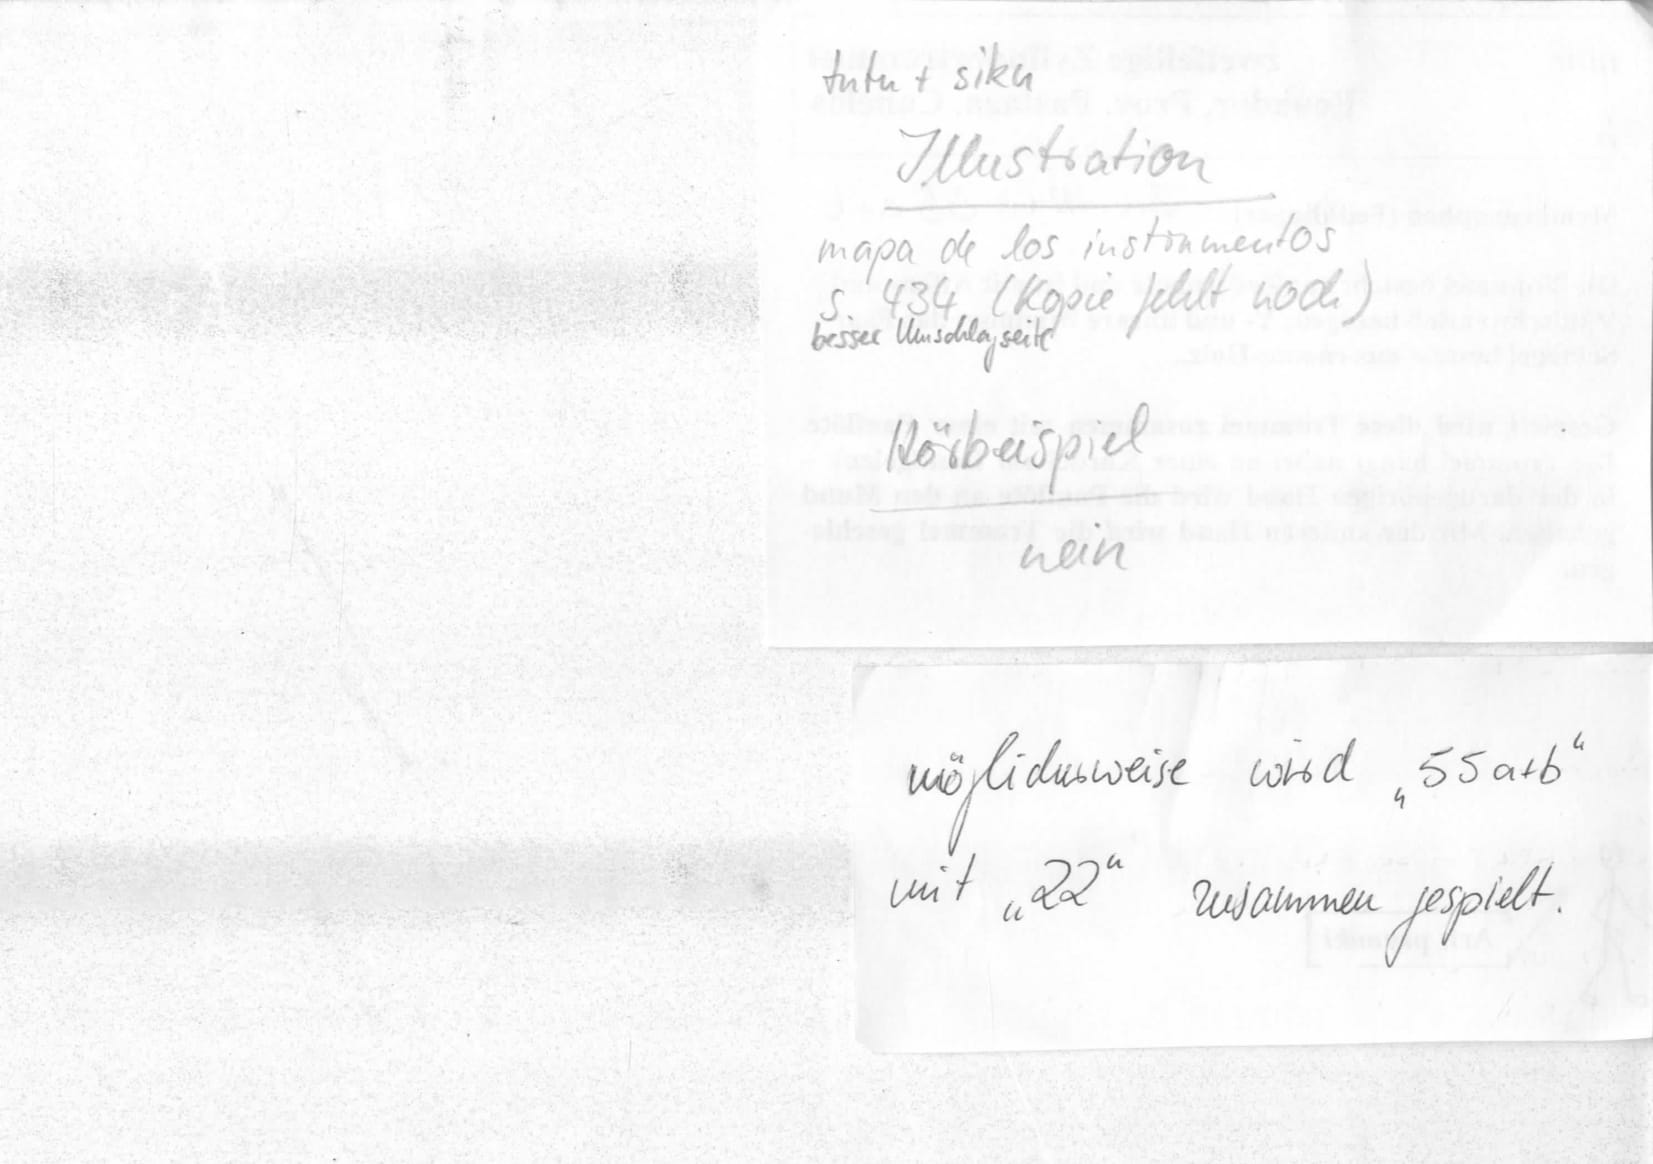 tutu + siku
Illustration
mapa de los instrumentos
S. 434 (Kopie fehlt noch)
besser Umschlagseite
Hörbeispiel
nein
möglicherweise wird „55a+b“
mit „22“ zusammen gespielt.